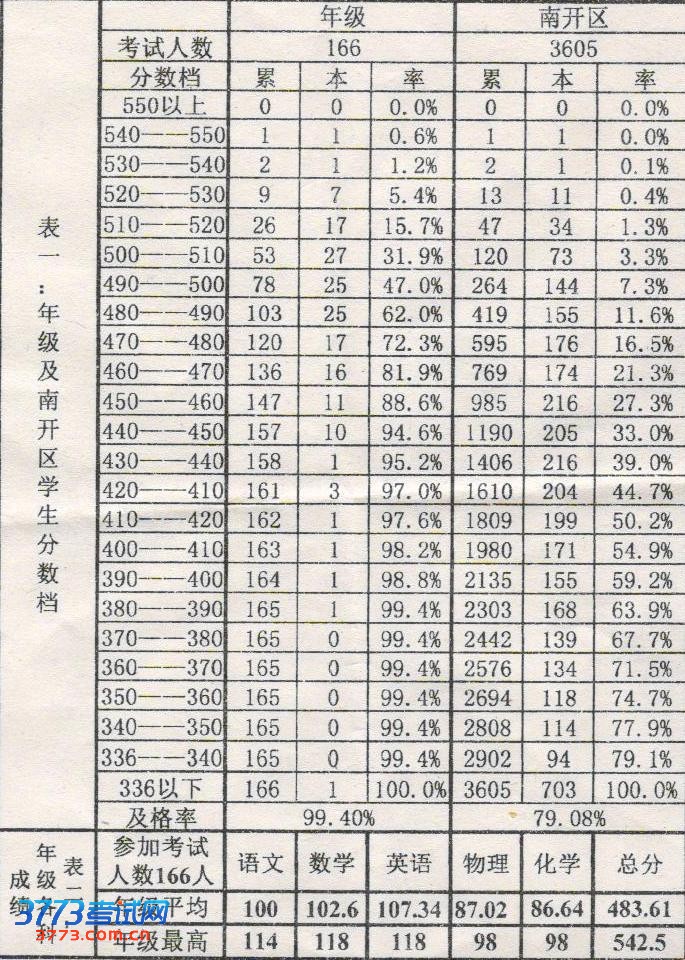 年级 南开区
考试人数 166 3605
分数档 累 本 率 累 本 率
550以上 0 0 0.0% 0 0 0.0%
540——550 1 1 0.6% 1 1 0.0%
530——540 2 1 1.2% 2 1 0.1%
520——530 9 7 5.4% 13 11 0.4%
510——520 26 17 15.7% 47 34 1.3%
500——510 53 27 31.9% 120 73 3.3%
490——500 78 25 47.0% 264 144 7.3%
480——490 103 25 62.0% 419 155 11.6%
470——480 120 17 72.3% 595 176 16.5%
460——470 136 16 81.9% 769 174 21.3%
450——460 147 11 88.6% 985 216 27.3%
440——450 157 10 94.6% 1190 205 33.0%
430——440 158 1 95.2% 1406 216 39.0%
420——410 161 3 97.0% 1610 204 44.7%
410——420 162 1 97.6% 1809 199 50.2%
400——410 163 1 98.2% 1980 171 54.9%
390——400 164 1 98.8% 2135 155 59.2%
380——390 165 1 99.4% 2303 168 63.9%
370——380 165 0 99.4% 2442 139 67.7%
360——370 165 0 99.4% 2576 134 71.5%
350——360 165 0 99.4% 2694 118 74.7%
340——350 165 0 99.4% 2808 114 77.9%
336——340 165 0 99.4% 2902 94 79.1%
336以下 166 1 100.0% 3605 703 100.0%
及格率 99.40% 79.08%
表一:年级及南开区学生分数档
参加考试
人数166人 语文 数学 英语 物理 化学 总分
年级平均 100 102.6 107.34 87.02 86.64 483.61
年级最高 114 118 118 98 98 542.5
表二
年级各科
成绩
3773考试网
3773.com.cn